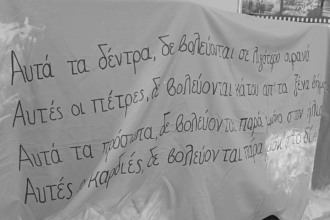 Αυτά τα δέντρα, δε βολεύονται σε λιγότερο ουρανό
Αυτές οι πέτρες, δε βολεύονται κάτου απ τα ξένα βήματα
Αυτά τα πρόσωπα, δε βολεύονται παρά μόνο στον ήλιο
Αυτές καρδιές, δε βολεύονται παρά μόνο στο